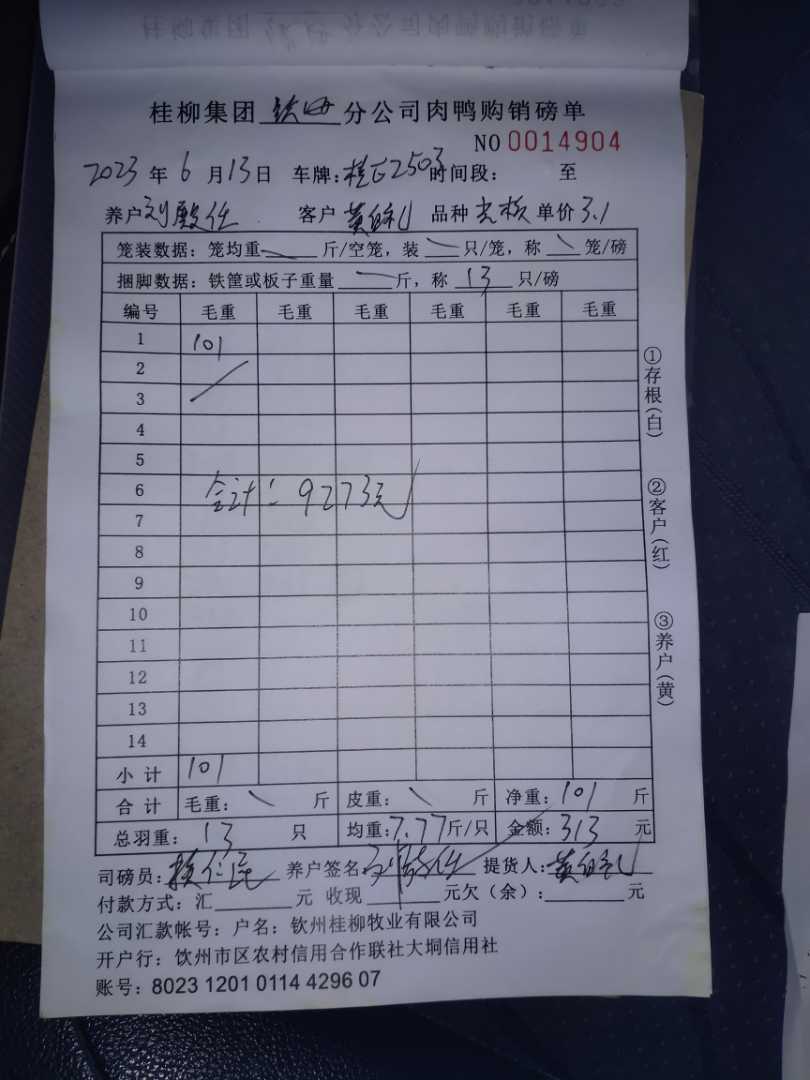 桂柳集团 钦州 分公司肉鸭购销磅单
NO 0014904
2023 年 6 月 13 日 车牌: 2503 时间段: 至
养户 刘 客户 黄 品种 单价 3.1
笼装数据: 笼均重 斤/空笼, 装 只/笼, 称 笼/磅
捆脚数据: 铁筐或板子重量 斤, 称 13 只/磅
编号 毛重 毛重 毛重 毛重 毛重 毛重
1 101
2
3
4
5
6 合计: 9273元
7
8
9
10
11
12
13
14
小计 101
合计 毛重: 斤 皮重: 斤 净重: 101 斤
总羽重: 13 只 均重: 7.77 斤/只 金额: 313 元
司磅员: 养户签名: 刘 提货人: 黄
付款方式: 汇 元 收现 元欠(余): 元
公司汇款帐号: 户名: 钦州桂柳牧业有限公司
开户行: 饮州市区农村信用合作联社大垌信用社
账号: 8023 1201 0114 4296 07
①存根(白)
②客户(红)
③养户(黄)